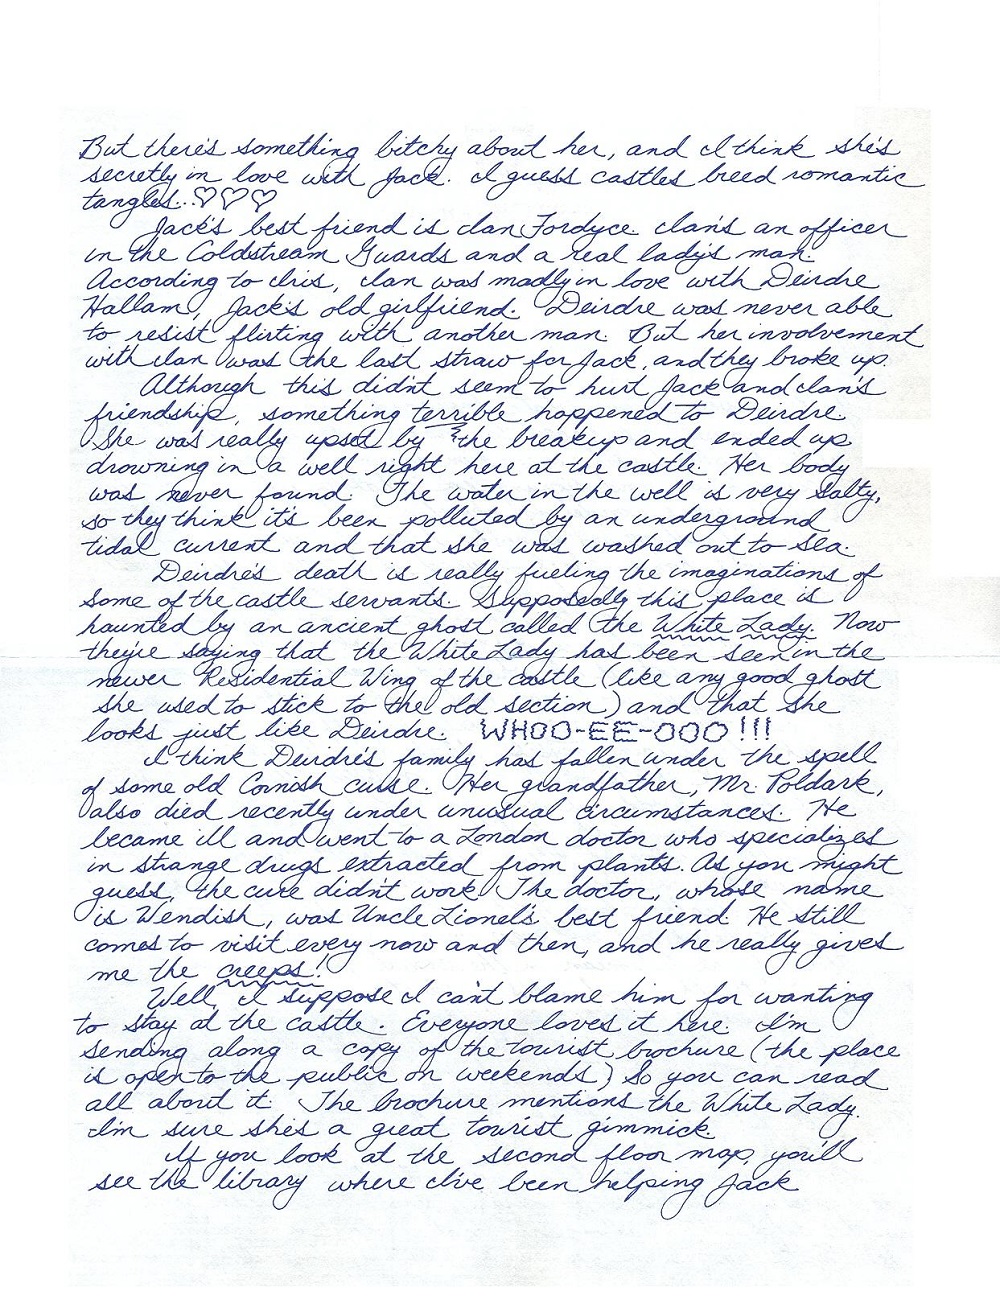 But there's something bitchy about her, and I think she's
secretly in love with Jack. I guess castles breed romantic
tangles...♡♡♡
Jack's best friend is Ian Fordyce. Ian's an officer
in the Coldstream Guards and a real lady's man.
According to Iris, Ian was madly in love with Deirdre
Hallam, Jack's old girlfriend. Deirdre was never able
to resist flirting with another man. But her involvement
with Ian was the last straw for Jack, and they broke up.
Although this didn't seem to hurt Jack and Ian's
friendship, something terrible happened to Deirdre.
She was really upset by the breakup and ended up
drowning in a well right here at the castle. Her body
was never found. The water in the well is very salty,
so they think it's been polluted by an underground
tidal current and that she was washed out to sea.
Deirdre's death is really fueling the imaginations of
some of the castle servants. Supposedly this place is
haunted by an ancient ghost called the White Lady. Now
they're saying that the White Lady has been seen in the
newer Residential Wing of the castle (like any good ghost
she used to stick to the old section) and that she
looks just like Deirdre. WHOO-EE-OOO!!!
I think Deirdre's family has fallen under the spell
of some old Cornish curse. Her grandfather, Mr. Poldark,
also died recently under unusual circumstances. He
became ill and went to a London doctor who specializes
in strange drugs extracted from plants. As you might
guess, the cure didn't work. The doctor, whose name
is Wendish, was Uncle Lionel's best friend. He still
comes to visit every now and then, and he really gives
me the creeps!
Well, I suppose I can't blame him for wanting
to stay at the castle. Everyone loves it here. I'm
sending along a copy of the tourist brochure (the place
is open to the public on weekends.) So you can read
all about it. The brochure mentions the White Lady.
I'm sure she's a great tourist gimmick.
If you look at the second floor map, you'll
see the library where I've been helping Jack